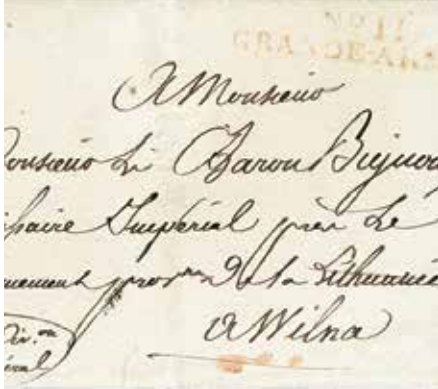 No 11
GRANDE-AR
A Monsieur
onsieur Le Baron Bignon
ssaire Impérial près Le
nement prov.re De la Lithuanie
Dir.on
éral
A Wilna